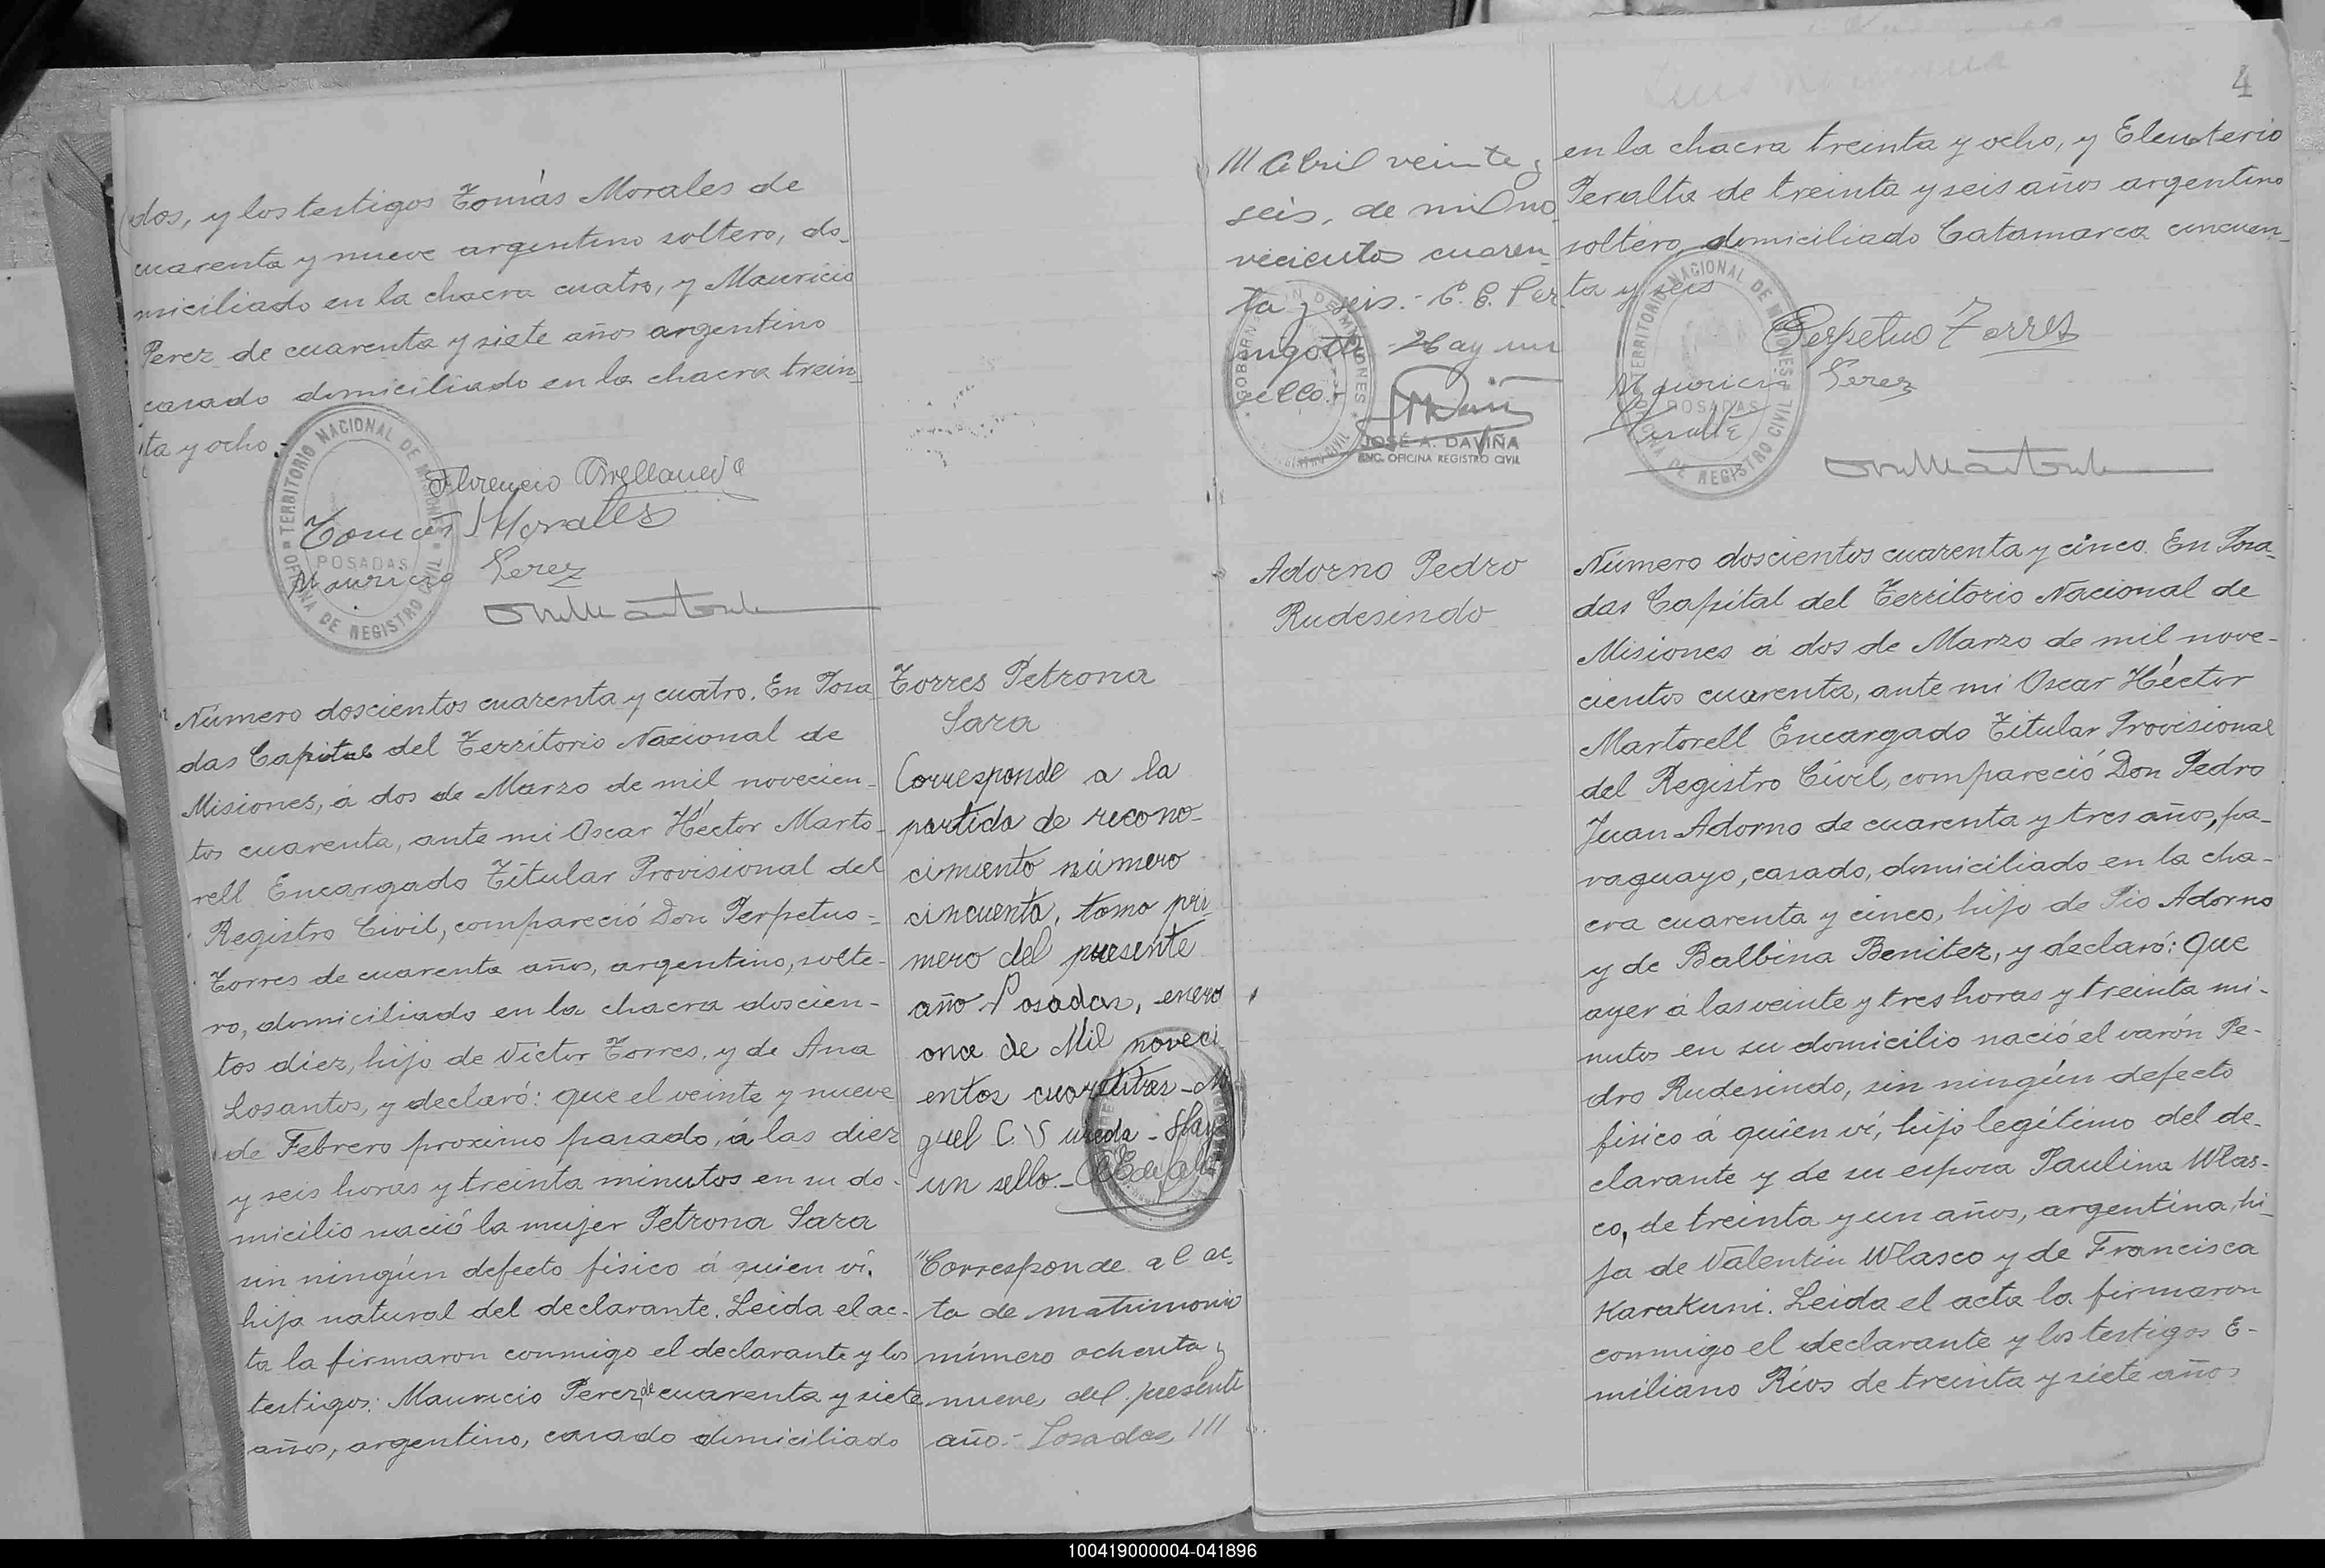 dos, y los testigos Tomás Morales de
cuarenta y nueve argentino soltero, do-
miciliado en la chacra cuatro, y Mauricio
Perez de cuarenta y siete años argentino
casado domiciliado en la chacra trein-
ta y ocho.-
TERRITORIO NACIONAL DE MISIONES
POSADAS
OFICINA DE REGISTRO CIVIL
Florencio Avellaneda
Tomás Morales
Mauricio Perez
Número doscientos cuarenta y cuatro. En Posa
das Capital del Territorio Nacional de
Misiones, á dos de Marzo de mil novecien-
tos cuarenta, ante mi Oscar Héctor Marto-
rell Encargado Titular Provisional del
Registro Civil, compareció Don Perpetuo-
Torres de cuarenta años, argentino, solte-
ro, domiciliado en la chacra doscien-
tos diez, hijo de Victor Torres, y de Ana
Losantos, y declaró: que el veinte y nueve
de Febrero proximo pasado, á las diez
y seis horas y treinta minutos en su do-
micilio nació la mujer Petrona Sara
sin ningún defecto fisico á quien ví,
hija natural del declarante. Leida el ac-
ta la firmaron conmigo el declarante y los
testigos: Mauricio Perez de cuarenta y siete
años, argentino, casado domiciliado
Torres Petrona
Sara
Corresponde a la
partida de recono-
cimiento número
cincuenta, tomo pri-
mero del presente
año Posadas, enero
once de Mil noveci
entos cuarentitres - Mi
guel C. Ureda - Hay
un sello.-
"Corresponde al ac-
ta de matrimonio
número ochenta y
nueve del presente
año.- Posadas, ///
/// Abril veinte y
seis, de mil no
vecientos cuaren-
ta y seis.- C. E. Per
ingotti - Hay un
sello.-
GOBERNACION DE MISIONES
REGISTRO CIVIL
JOSÉ A. DAVIÑA
ENC. OFICINA REGISTRO CIVIL
Adorno Pedro
Rudesindo
4
en la chacra treinta y ocho, y Eleuterio
Peralta de treinta y seis años argentino
soltero, domiciliado Catamarca cincuen-
ta y seis
TERRITORIO NACIONAL DE MISIONES
POSADAS
OFICINA DE REGISTRO CIVIL
Perpetuo Torres
Mauricio Perez
Peralta
Número doscientos cuarenta y cinco. En Posa-
das Capital del Territorio Nacional de
Misiones á dos de Marzo de mil nove-
cientos cuarenta, ante mi Oscar Héctor
Martorell Encargado Titular Provisional
del Registro Civil, compareció Don Pedro
Juan Adorno de cuarenta y tres años, pa-
raguayo, casado, domiciliado en la cha-
cra cuarenta y cinco, hijo de Pio Adorno
y de Balbina Benitez, y declaró: Que
ayer á las veinte y tres horas y treinta mi-
nutos en su domicilio nació el varón Pe-
dro Rudesindo, sin ningún defecto
fisico á quien ví, hijo legítimo del de-
clarante y de su esposa Paulina Wlas-
co, de treinta y un años, argentina, hi-
ja de Valentin Wlasco y de Francisca
Karakuni. Leida el acta la firmaron
conmigo el declarante y los testigos E-
miliano Ríos de treinta y siete años
100419000004-041896